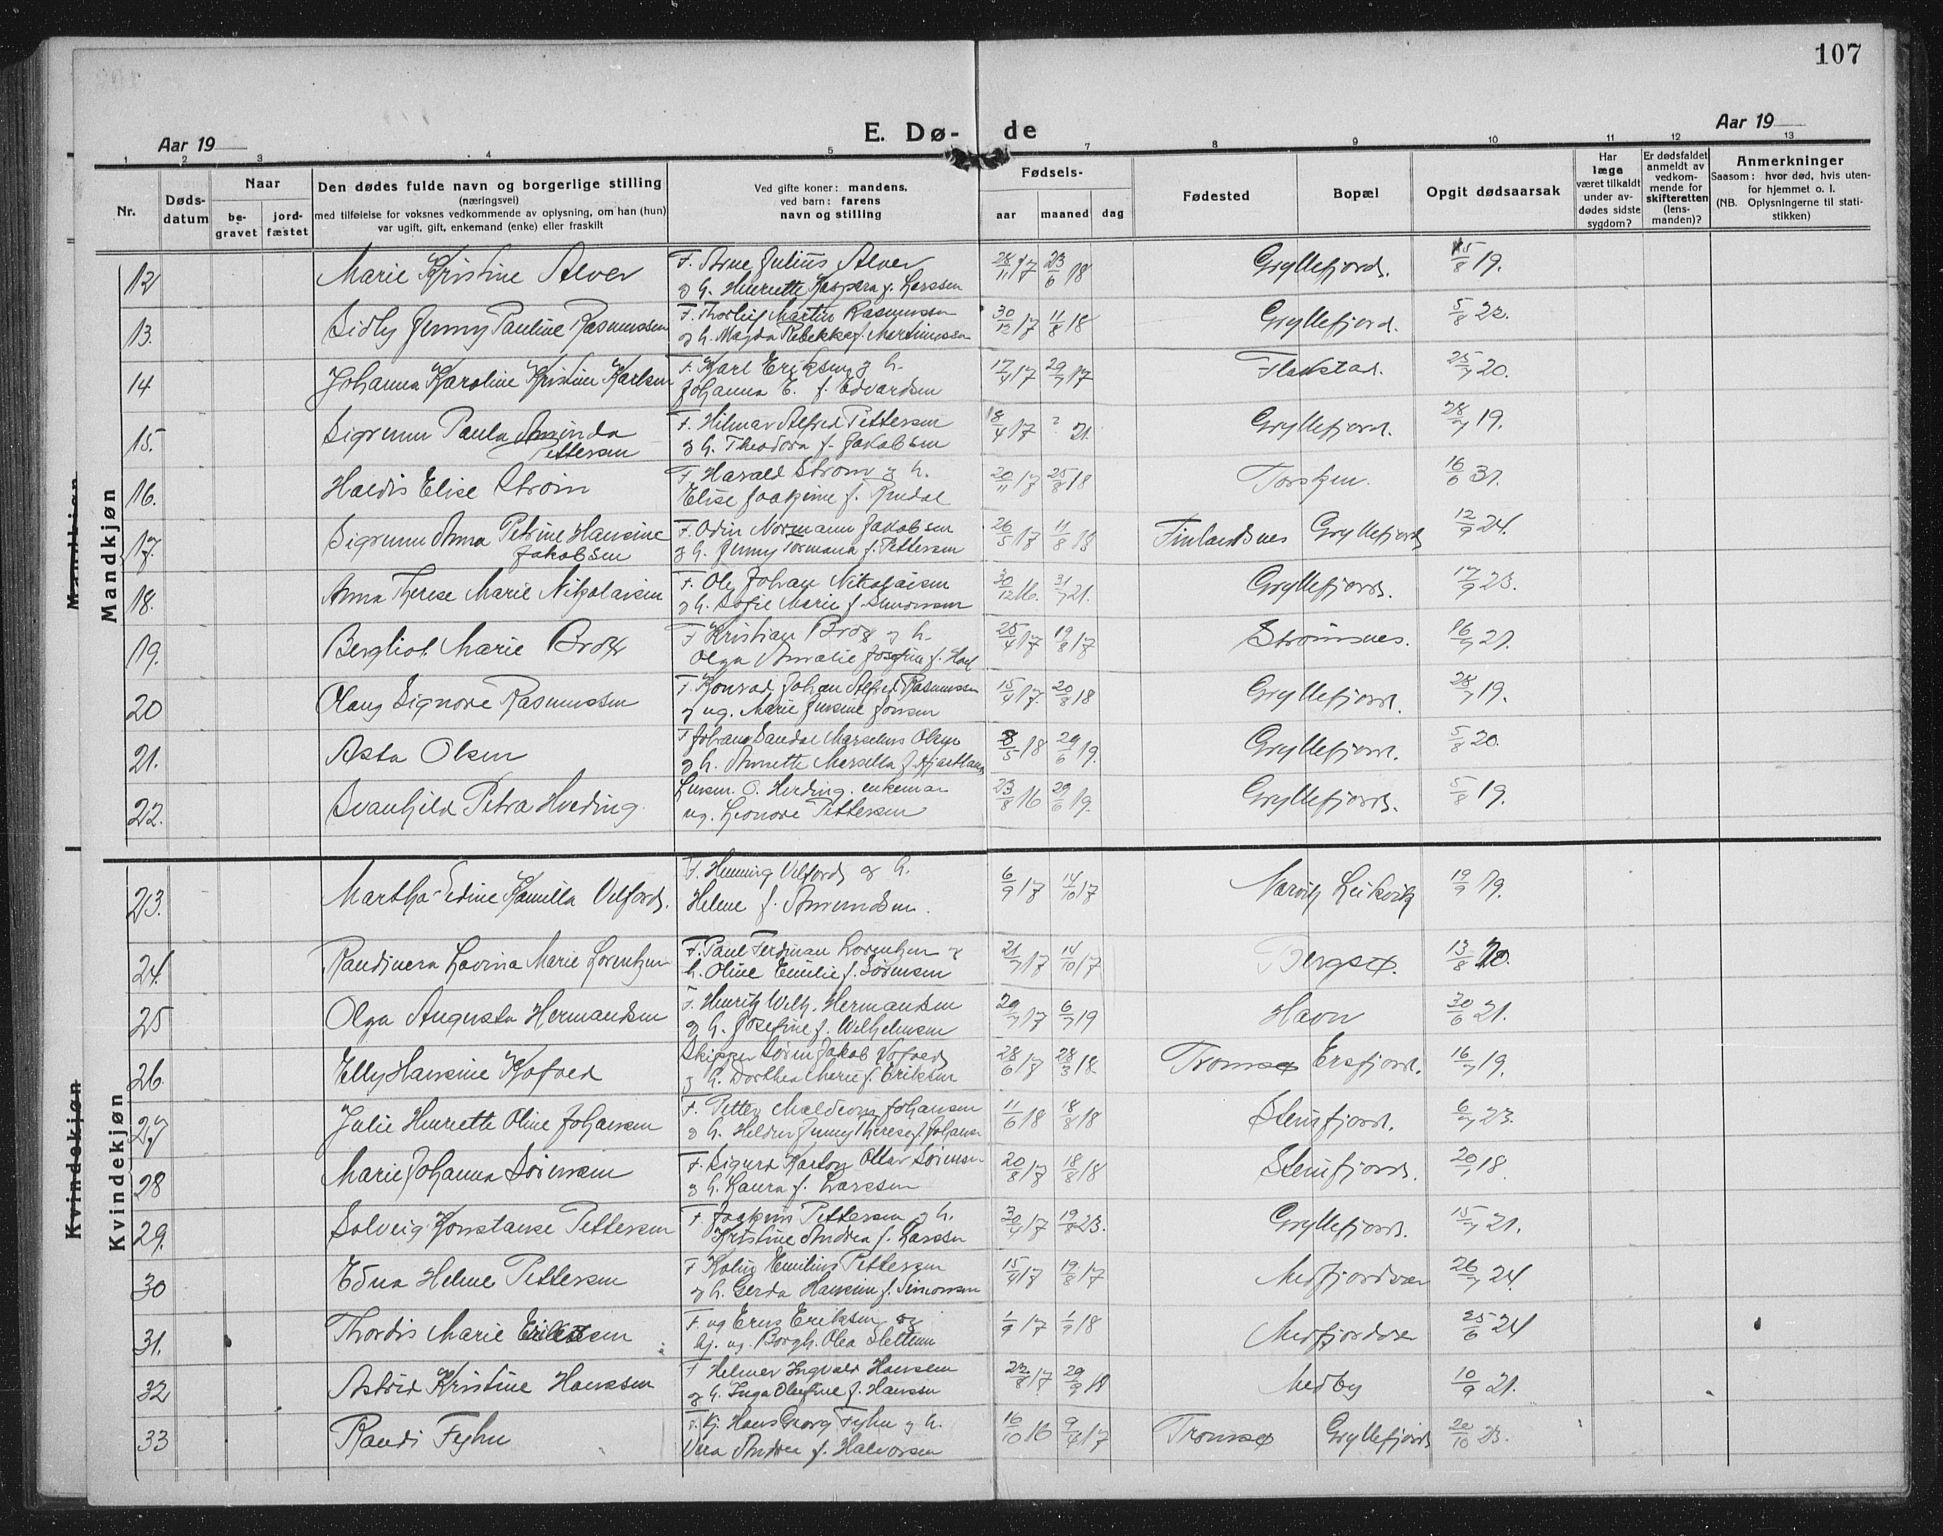 107
Aar 19
E. Dø- de
Aar 19
1 2 3 4 5 7 8 9 10 11 12 13
Nr.
Døds-
datum
Naar
be-
gravet
jord-
fæstet
Den dødes fulde navn og borgerlige stilling
(næringsvei)
med tilføielse for voksnes vedkommende av oplysning, om han (hun)
var ugift, gift, enkemand (enke) eller fraskilt
Ved gifte koner: mandens,
ved barn: farens
navn og stilling
Fødsels-
aar maaned dag
Fødested
Bopæl
Opgit dødsaarsak
Har
læge
været tilkaldt
under av-
dødes sidste
sygdom?
Er dødsfaldet
anmeldt av
vedkom-
mende for
skifteretten
(lens-
manden)?
Anmerkninger
Saasom: hvor død, hvis uten-
for hjemmet o. l.
(NB. Oplysningerne til stati-
stikken)
Mandkjøn
Mandkjøn
Kvindekjøn
Kvindekjøn
12 Marie Kristine Alver F. Arne Julius Alver 28/11 17 23/6 18 Gryllefjord. 15/8 19.
og h. Henriette Kaspara f. Larssen
13. Sidly Jenny Pauline Rasmussen F. Thorleif Martin Rasmussen 30/12 17 11/8 18 Gryllefjord. 5/8 22.
og h. Magda Rebekka f. Martinussen
14 Johanna Karoline Kristine Karlsen F. Karl Eriksen og h. 17/4 17 29/7 17 Flakstad. 25/7 20.
Johanna E. f. Edvardsen
15. Sigrunn Paula Aminda F. Hilmar Alfred Pettersen 18/4 17 ? 21. Gryllefjord. 28/7 19.
Pettersen og h. Theodora f. Jakobsen
16. Haldis Elise Strøm F. Harald Strøm og h. 20/11 17 25/8 18 Torsken. 16/6 31.
Elise Joakime f.
17. Sigrunn Anna Petrine Hansine F. Odin Normann Jakobsen 26/5 17 11/8 18 Finlandsnes Gryllefjord 12/9 24.
Jakobsen og h. Jenny Normana f. Pettersen
18. Anna Therese Marie Nikolaisen F. Ole Johan Nikolaisen 30/12 16. 31/7 21. Gryllefjord. 17/9 23.
og h. Sofie Marie f. Simonsen
19. Bergliot Marie Brox F Kristian Brox og h. 25/4 17 19/8 17 Strømsnes. 16/7 21.
Olga Amalie Josefine f.
20 Olaug Signore Rasmussen F. Konrad Johan Alfred Rasmussen 15/4 17. 20/8 18 Gryllefjord. 28/7 19.
og ug. Marie Jensine Jonsen
21. Asta Olsen F Johan Sandal Marselius Olsen 8/5 18 29/6 19. Gryllefjord. 5/8 20.
og h. Annette Marsella f.
22. Svanhild Petra Hveding. Lensm. O. Hveding. enkeman 23/8 16 29/6 19. Gryllefjord. 5/8 19.
ug. Leonore Pettersen
23. Martha Edine Kamilla Vilfords. F. Henning Vilfords og h. 6/9 17 14/10 17 Narvik Leikvik 19/9 19.
Helene f. Amundsen.
24. Randinera Lovina Marie Lorentzen F. Paul Ferdinan Lorentzen og 21/7 17 14/10 17 Bergsø. 13/8 20.
h. Oline Emilie f. Sørensen
25 Olga Augusta Hermandsen F. Henrik Wilh. Hermandsen 29/7 17 6/7 19 Havn 30/6 21.
og h. Josefine f. Wilhelmsen
26. Elly Hansine Kofoed Skipper Søren Jakob Kofoed 28/6 17 28/3 18. Tromsø Ersfjord. 16/7 19.
og h. Dorthea Marie f. Eriksen
27 Julie Henriette Oline Johansen F. Petter Meldeong Johansen 11/6 18 18/8 18 Steinfjord. 6/7 23.
og h. Helden Jenny Therese f. Johanse
28 Marie Johanna Sørensen F. Sigurd Karton Ottar Sørensen 20/8 17 18/8 18 Steinfjord. 20/7 18.
og h. Laura f. Larssen
29. Solveig Konstanse Pettersen F. Joakim Pettersen og h. 30/4 17 19/8 23. Gryllefjord. 15/7 21.
Kristine Andrea f. Larssen
30 Edna Helene Pettersen F Kolin Emilius Pettersen 15/4 17 19/8 17 Medfjordvær 26/7 24.
og h. Gerda Hansine f. Simonsen
31. Thordis Marie Eriksen F. ug Enus Eriksen og 1/9 17 1/9 18 Medfjordvær 25/6 24
hj. ug. Borgh. Olea Slettum
32 Astrid Kristine Hanssen F Helmer Ingvald Hanssen 22/8 17 29/9 18 Medby 10/9 21.
og h. Inga Olufine f. Hanssen
33 Randi Fyhn F. Kj. Hans Georg Fyhn og h. 16/10 16 9/4 17 Tromsø Gryllefjord 20/10 23.
Vera Andrea f. Halvorsen